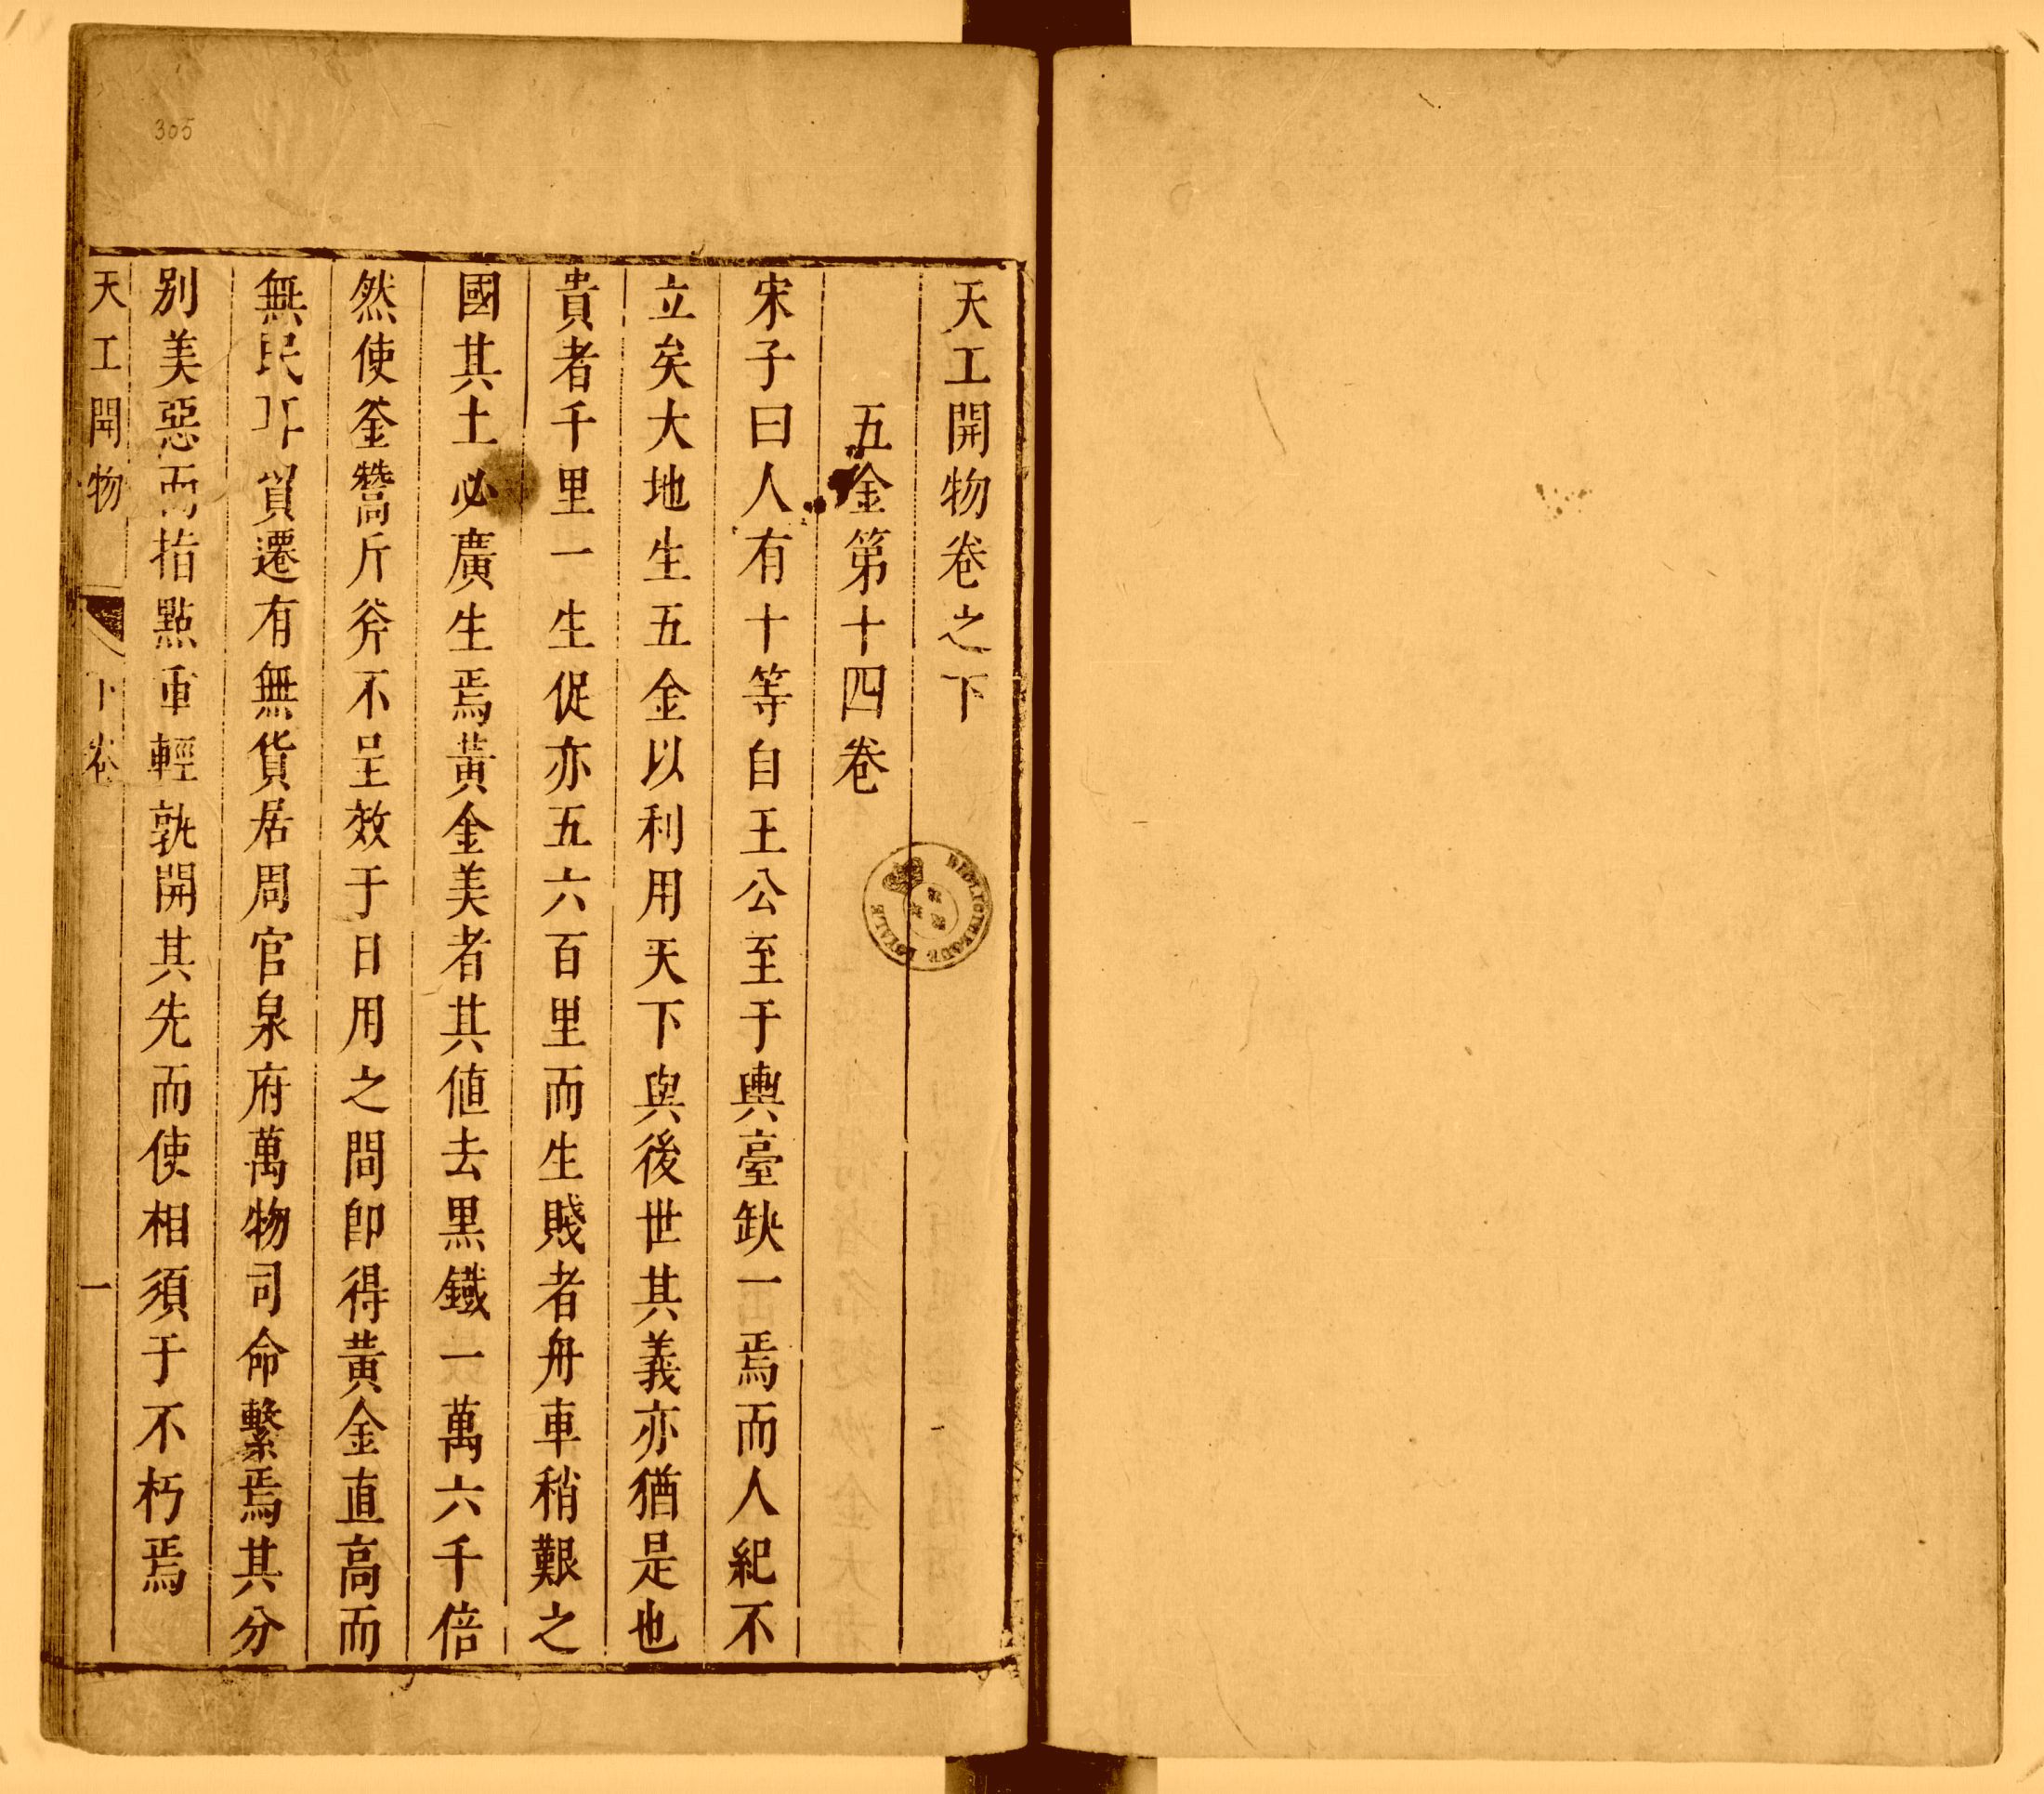 天工開物卷之下
五金第十四卷
宋子曰人有十等自王公至于輿臺缺一焉而人紀不
立矣大地生五金以利用天下與後世其義亦猶是也
貴者千里一生促亦五六百里而生賤者舟車稍艱之
國其土必廣生焉黃金美者其值去黑鐵一萬六千倍
然使釜鬵斤斧不呈效于日用之間即得黃金直高而
無民耳貿遷有無貨居周官泉府萬物司命繫焉其分
别美惡而指點重輕孰開其先而使相須于不朽焉
天工開物 下卷 一
305
BIBLIOTHEQUE ROYALE